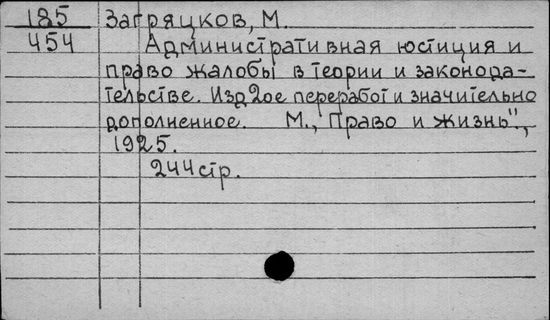 185 Загряцков, М.
454 Административная юстиция и
право жалобы в теории и законода-
тельстве. Изд 2ое переработ и значительно
дополненное. М., "Право и жизнь",
1925.
244 стр.